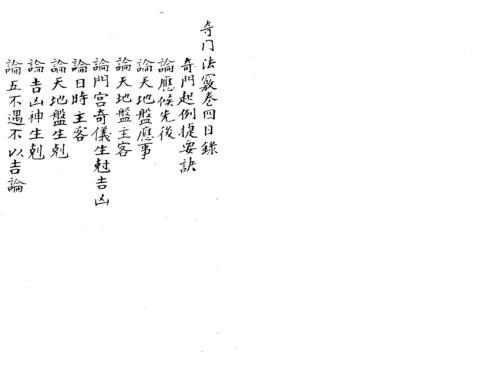 奇门法竅卷四目錄
奇門起例捷要訣
論應候先後
論天地盤應事
論天地盤主客
論門宫奇儀生尅吉凶
論日時主客
論天地盤生剋
論吉凶神生剋
論五不遇不以吉論